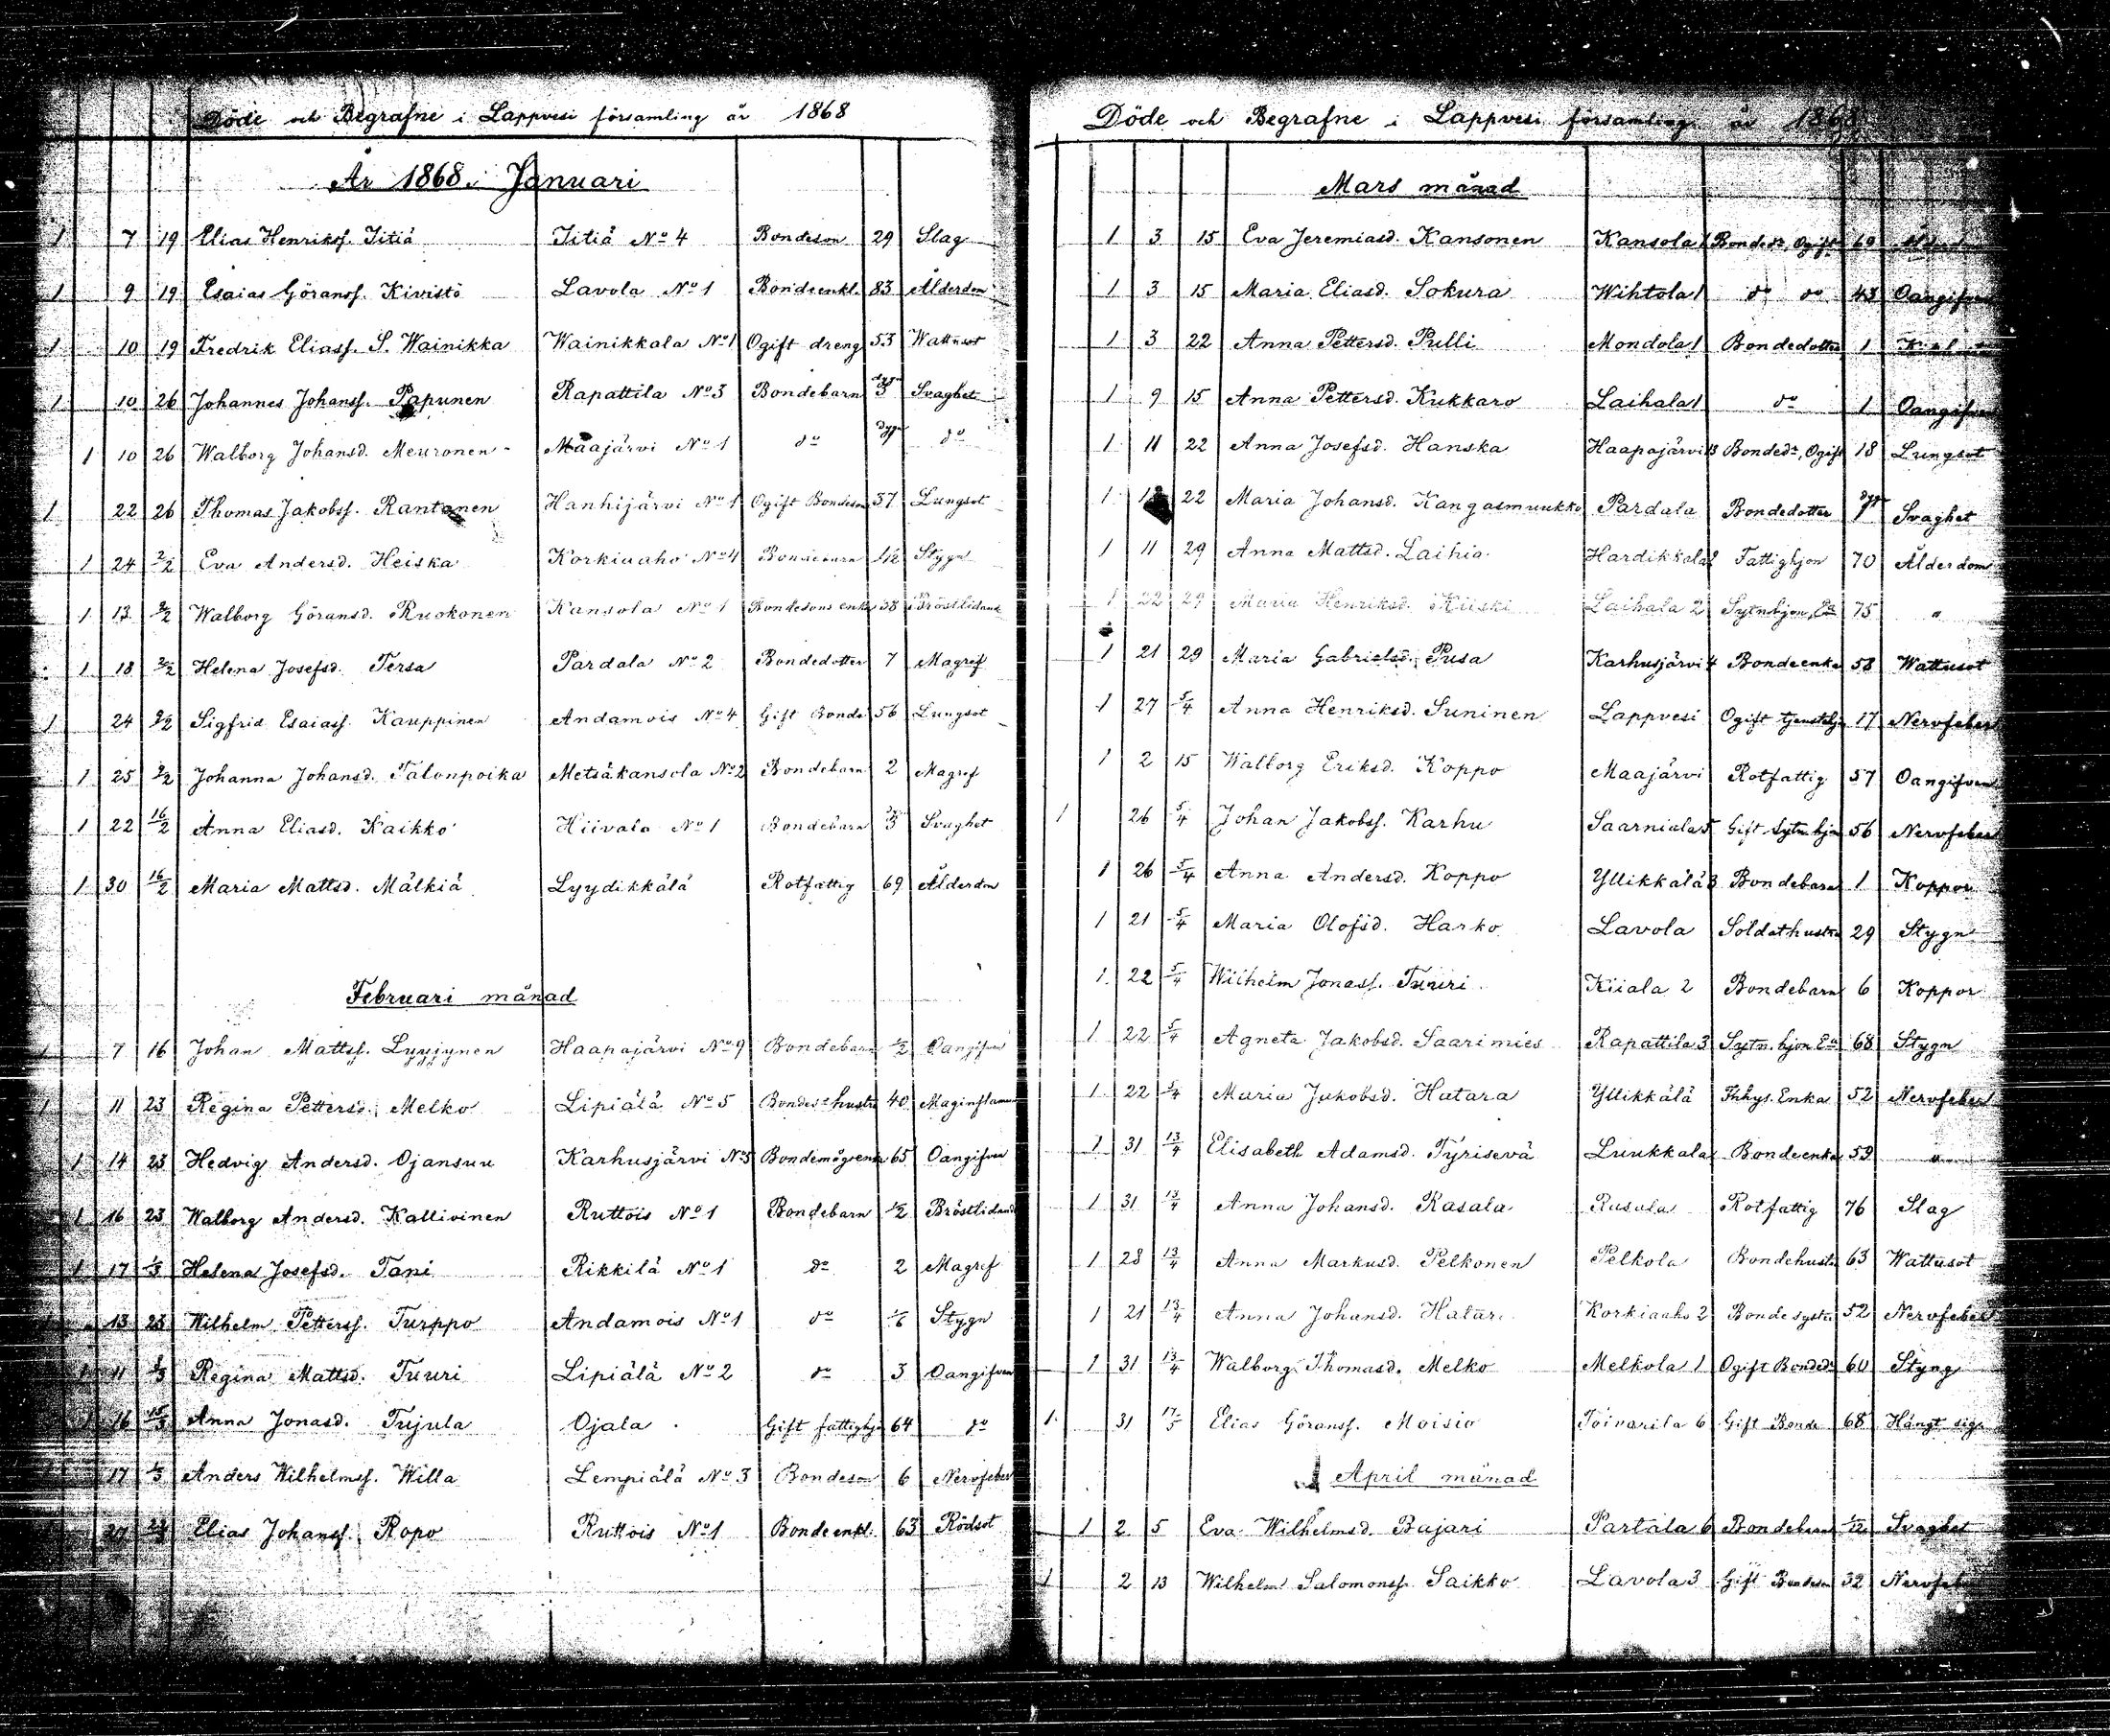 Döde och Begrafne i Lappvesi församling år 1868
År 1868. Januari
1 7 19 Elias Henrikss. Titiä Titiä No 4 Bondeson 29 Slag
1 9 19 Esaias Göranss. Kivistö Lavola No 1 Bondeenkl. 83 Ålderdom
1 10 19 Fredrik Eliass. S. Wainikka Wainikkala No 1 Ogift dreng 53 Wattusot
1 10 26 Johannes Johanss. Papunen Rapattila No 3 Bondebarn 3 Svaghet
1 10 26 Walborg Johansd. Meuronen Maajärvi No 1 do do
1 22 26 Thomas Jakobss. Rantanen Hanhijärvi No 1 Ogift Bondeson 37 Lungsot
1 24 2/2 Eva Andersd. Heiska Korkiaaho No 4 Bondebarn 1/12 Stygn
1 13 2/2 Walborg Göransd. Ruokonen Kansola No 1 Bondesons enka 38 Bröstlidande
1 18 2/2 Helena Josefsd. Tersa Pardala No 2 Bondedotter 7 Magref
1 24 9/2 Sigfrid Esaiass. Kauppinen Andamois No 4 Gift Bonde 56 Lungsot
1 25 9/2 Johanna Johansd. Talonpoika Metsäkansola No 2 Bondebarn 2 Magref
1 22 16/2 Anna Eliasd. Kaikko Hiivala No 1 Bondebarn 3 Svaghet
1 30 16/2 Maria Mattsd. Mälkiä Lyydikkälä Rotfattig 69 Ålderdom
Februari månad
1 7 16 Johan Mattss. Lyyjynen Haapajärvi No 9 Bondebarn 1/2 Oangifven
1 11 23 Regina Pettersd. Melko Lipiälä No 5 Bondes. hustru 40 Maginflam
1 14 23 Hedvig Andersd. Ojansuu Karhusjärvi No 5 Bondemågenka 65 Oangifven
1 16 23 Walborg Andersd. Kallioinen Ruttois No 1 Bondebarn 1/2 Bröstlidande
1 17 1/3 Helena Josefsd. Tani Rikkilä No 1 do 2 Magref
13 23 Wilhelm Petterss. Turppo Andamois No 1 do 1/6 Stygn
1 11 1/3 Regina Mattsd. Tuuri Lipiälä No 2 do 3 Oangifven
1 16 15/3 Anna Jonasd. Tujula Ojala Gift fattighj. 64 do
17 1/3 Anders Wilhelmss. Willa Lempiälä No 3 Bondeson 6 Nervfeber
27 Elias Johanss. Ropo Ruttois No 1 Bondeenkl. 63 Rödsot
Döde och Begrafne i Lappvesi församling år 1868
Mars månad
1 3 15 Eva Jeremiasd. Kansonen Kansola 1 Bonded., Ogift 69 Ålderdom
1 3 15 Maria Eliasd. Sokura Wihtola 1 do do 43 Oangifven
1 3 22 Anna Pettersd. Pulli Mondola 1 Bondedotter 1
1 9 15 Anna Pettersd. Kukkaro Laihala 1 do 1 Oangifven
1 11 22 Anna Josefsd. Hanska Haapajärvi 13 Bonded., Ogift 18 Lungsot
1 22 Maria Johansd. Kangasmuukko Pardala Bondedotter Svaghet
1 11 29 Anna Mattsd. Laihia Hardikkala 2 Fattighjon 70 Ålderdom
1 22 29 Maria Henriksd. Kiiski Laihala 2 Sytn.hjon, Ea 75 "
1 21 29 Maria Gabrielsd. Pusa Karhusjärvi 4 Bondeenka 58 Wattusot
1 27 5/4 Anna Henriksd. Suninen Lappvesi Ogift tjenstehj. 17 Nervfeber
1 2 15 Walborg Eriksd. Koppo Maajärvi Rotfattig 57 Oangifven
1 26 5/4 Johan Jakobss. Karhu Saarniala 5 Gift Sytn.hjon 56 Nervfeber
1 26 5/4 Anna Andersd. Koppo Yllikkälä 3 Bondebarn 1 Koppor
1 21 5/4 Maria Olofsd. Harko Lavola Soldathustru 29 Stygn
1 22 5/4 Wilhelm Jonass. Tuuri Kiiala 2 Bondebarn 6 Koppor
1 22 5/4 Agneta Jakobsd. Saarimies Rapattila 3 Sytn.hjon Ea 68 Stygn
1 22 5/4 Maria Jakobsd. Hatara Yllikkälä Inhys. Enka 52 Nervfeber
1 31 13/4 Elisabeth Adamsd. Tyrisevä Luukkala Bondeenka 59 "
1 31 13/4 Anna Johansd. Rasala Rasala Rotfattig 76 Slag
1 28 13/4 Anna Markusd. Pelkonen Pelkola Bondehustru 63 Wattusot
1 21 13/4 Anna Johansd. Hatar. Korkiaaho 2 Bondesyster 52 Nervfeber
1 31 13/4 Walborg Thomasd. Melko Melkola 1 Ogift Bonded. 60 Styng
1 31 17/5 Elias Göranss. Moisio Toivarila 6 Gift Bonde 68 Hängt sig
April månad
1 2 5 Eva Wilhelmsd. Bajari Partala 6 Bondebarn 1/12 Svaghet
1 2 13 Wilhelm Salomonss. Saikko Lavola 3 Gift Bondeson 32 Nervfeb